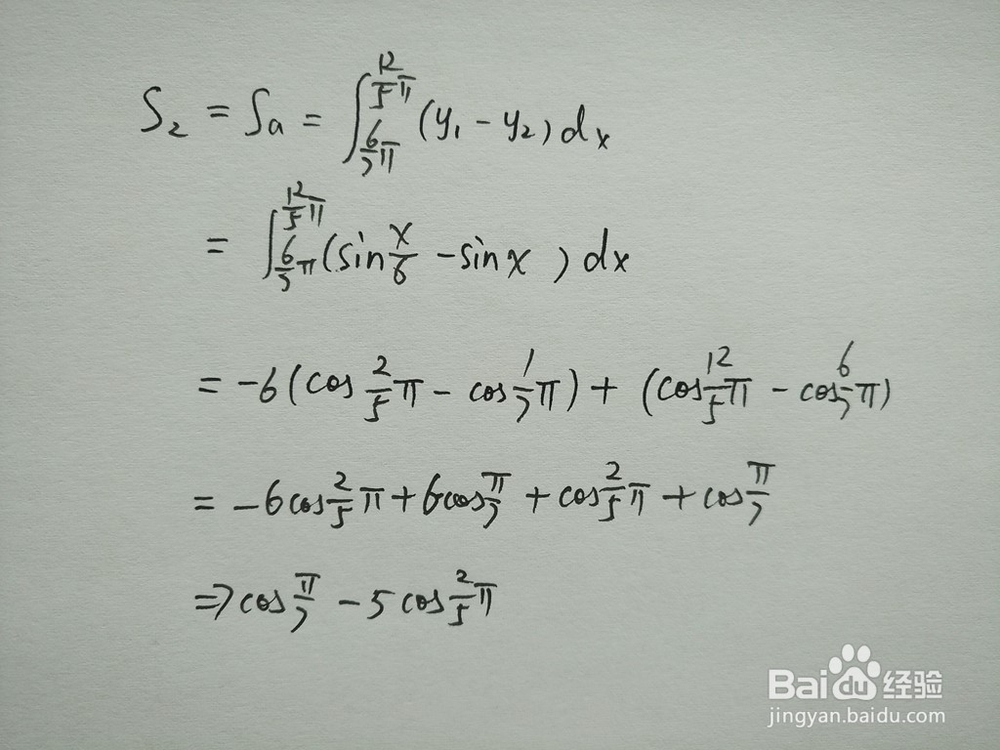 S₂ = Sa = ∫_{6/7 π}^{12/5 π} (y₁ - y₂) dx
= ∫_{6/7 π}^{12/5 π} (sin x/6 - sin x) dx
= -6 (cos 2/5 π - cos 1/7 π) + (cos 12/5 π - cos 6/7 π)
= -6 cos 2/5 π + 6 cos π/7 + cos 2/5 π + cos π/7
= 7 cos π/7 - 5 cos 2/5 π
Baidu 经验
jingyan.baidu.com